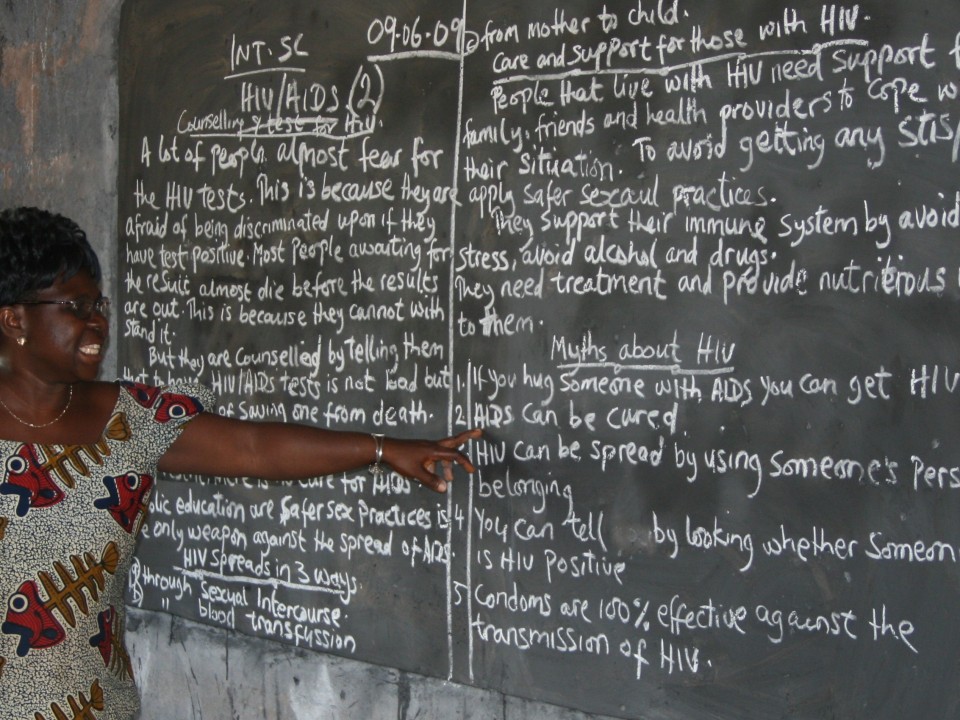 INT. SC
09.06.09
HIV/AIDS (2)
Counselling & test for HIV.
A lot of people almost fear for
the HIV tests. This is because they are
afraid of being discriminated upon if they
have test positive. Most people awaiting for
the result almost die before the results
are out. This is because they cannot with
stand it.
But they are counselled by telling them
HIV/AIDS tests is not
of saving one from death.
there is no cure for AIDS
education are safer sex practices is
only weapon against the spread of AIDS.
HIV spreads in 3 ways.
a) through sexual intercourse.
b) " blood transfussion
c) from mother to child.
Care and support for those with HIV.
People that live with HIV need support
family, friends and health providers to cope
their situation. To avoid getting any
apply safer sexaul practices.
They support their immune system by avoid
stress, avoid alcohol and drugs.
They need treatment and provide nutritious
to them.
Myths about HIV
1. If you hug someone with AIDS you can get HIV
2. AIDS can be cured
HIV can be spread by using someone's
belonging
4 You can tell by looking whether
is HIV positive
5 Condoms are 100% effective against the
transmission of HIV.